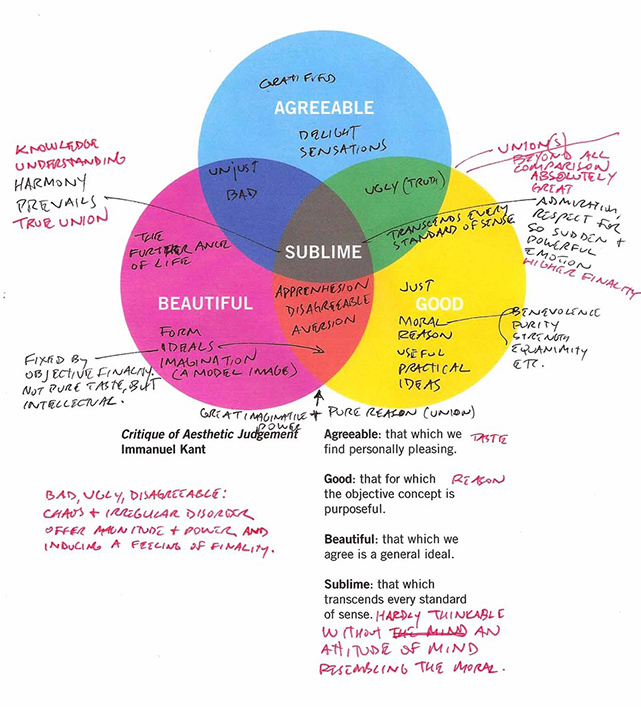 GRATIFIED
AGREEABLE
DELIGHT
SENSATIONS
KNOWLEDGE
UNDERSTANDING
HARMONY
PREVAILS
TRUE UNION
UNJUST
BAD
UGLY (TRUTH)
UNION(S)
BEYOND ALL
COMPARISON
ABSOLUTELY
GREAT
ADMIRATION,
RESPECT FOR
SO SUDDEN +
POWERFUL
EMOTION
HIGHER FINALITY
TRANSCENDS EVERY
STANDARD OF SENSE
THE
FURTHERANCE
OF LIFE
SUBLIME
BEAUTIFUL
APPRENHESION
DISAGREEABLE
AVERSION
JUST
GOOD
MORAL
REASON
USEFUL
PRACTICAL
IDEAS
BENEVOLENCE
PURITY
STRENGTH
EQUANIMITY
ETC.
FORM
IDEALS
IMAGINATION
(A MODEL IMAGE)
FIXED BY
OBJECTIVE FINALITY,
NOT PURE TASTE, BUT
INTELLECTUAL.
GREAT IMAGINATIVE + PURE REASON (UNION)
POWER
Critique of Aesthetic Judgement
Immanuel Kant
Agreeable: that which we TASTE
find personally pleasing.
Good: that for which REASON
the objective concept is
purposeful.
Beautiful: that which we
agree is a general ideal.
Sublime: that which
transcends every standard
of sense. HARDLY THINKABLE
WITHOUT THE MIND AN
ATTITUDE OF MIND
RESEMBLING THE MORAL.
BAD, UGLY, DISAGREEABLE:
CHAOS + IRREGULAR DISORDER
OFFER MAGNITUDE + POWER AND
INDUCING A FEELING OF FINALITY.